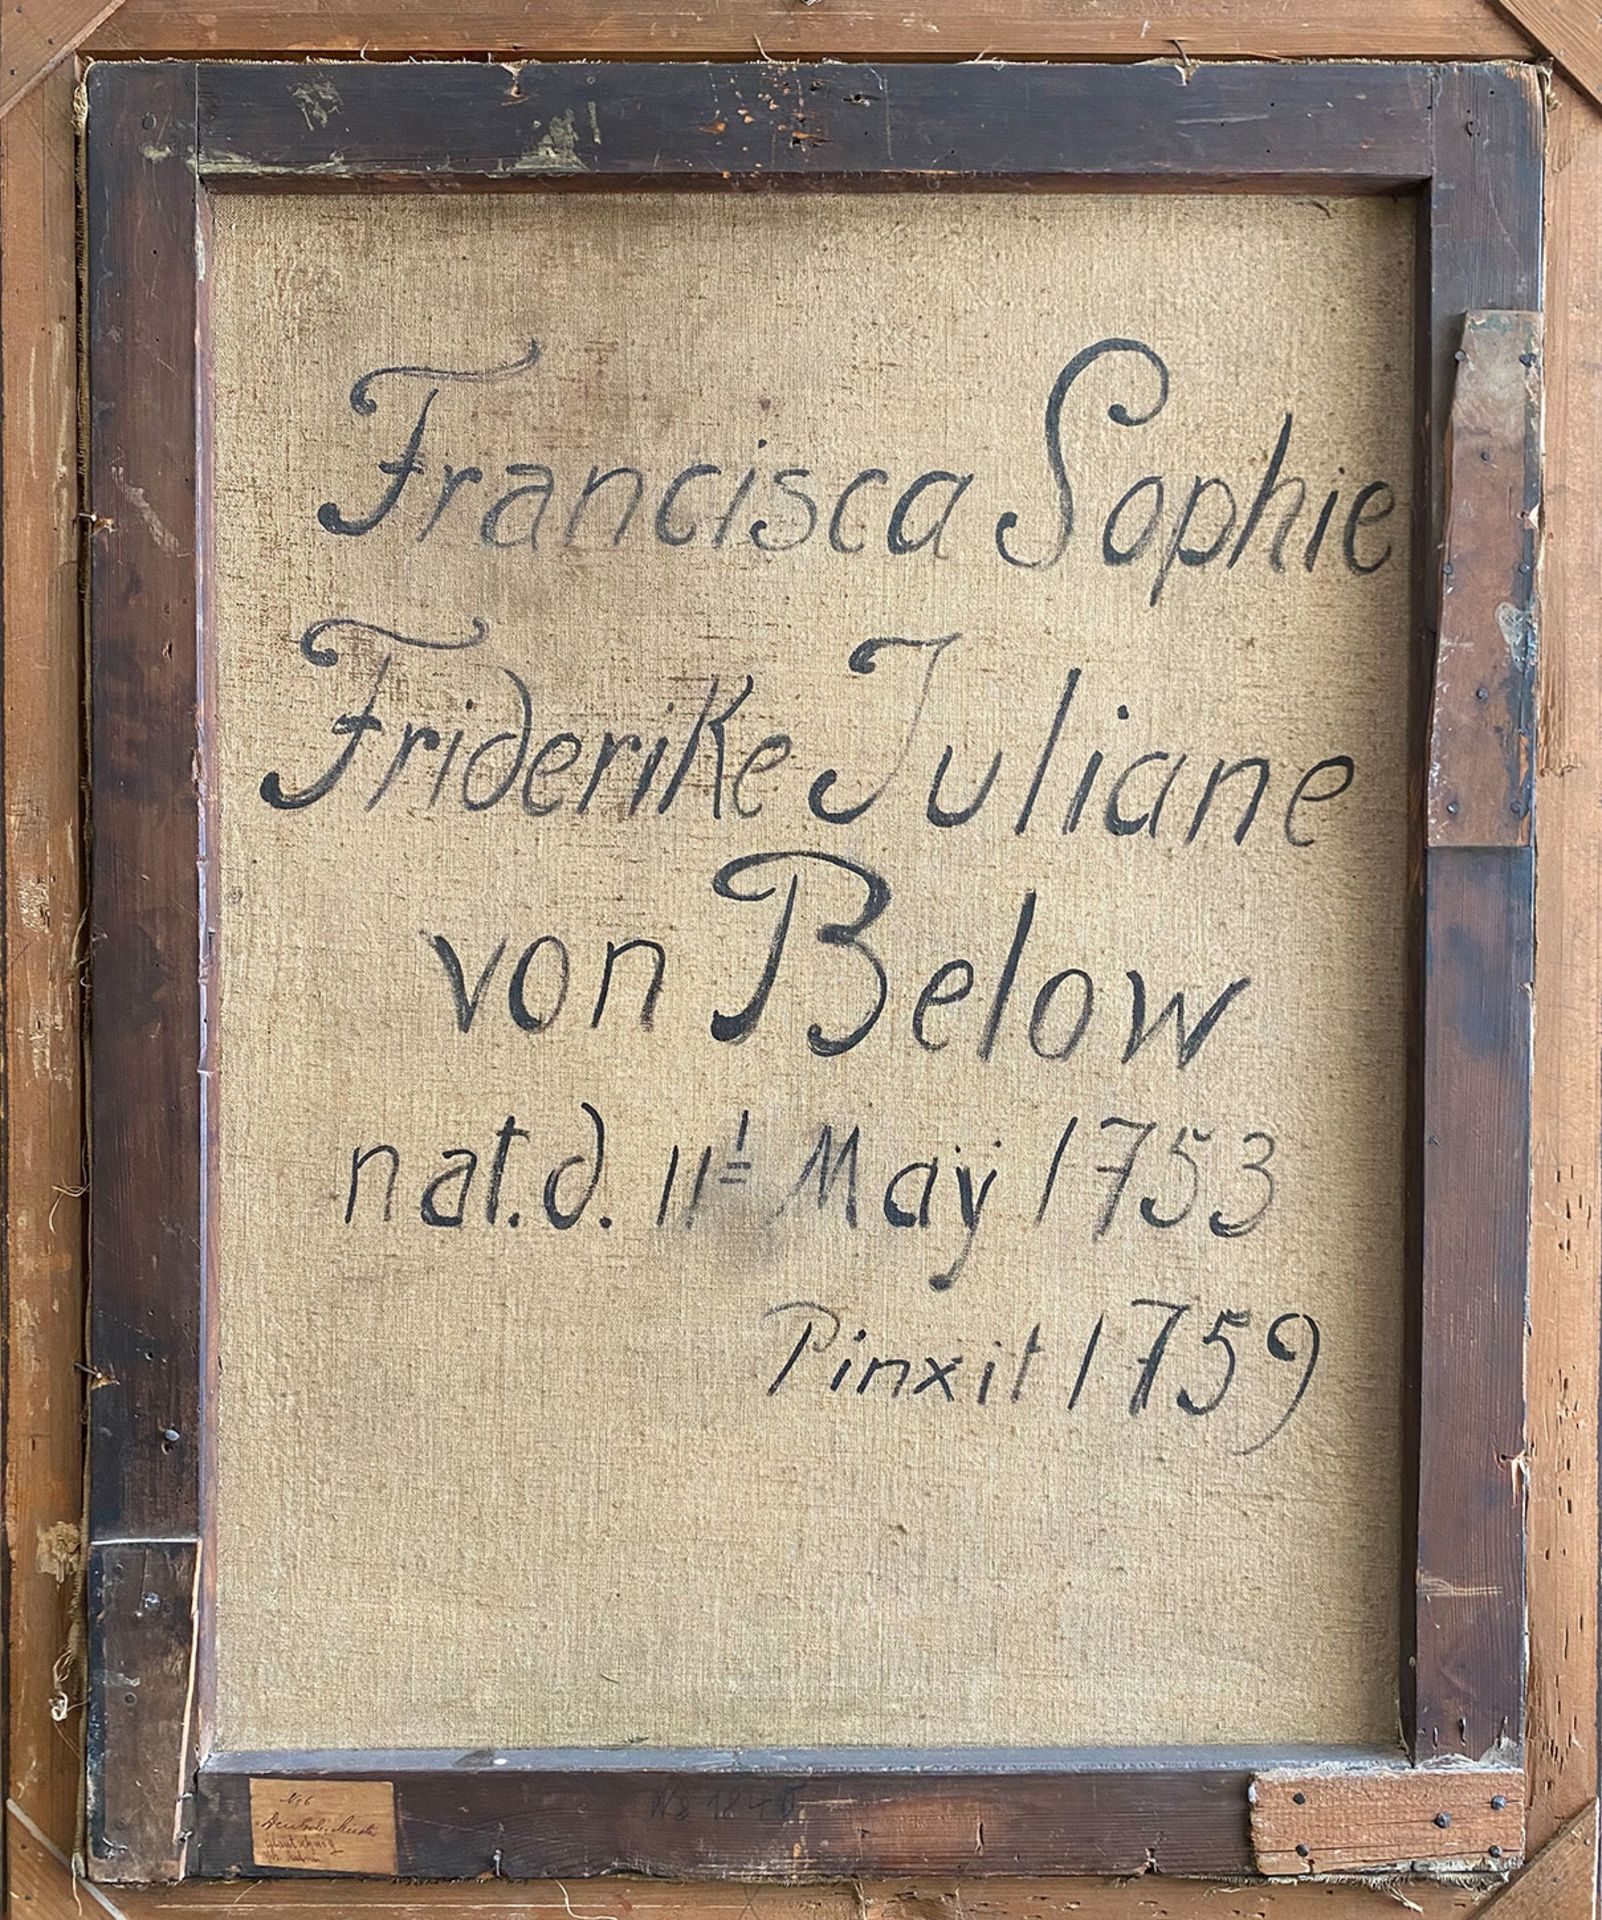 Francisca Sophie
Friderike Juliane
von Below
nat. d. 11t May 1753
Pinxit 1759
No 6